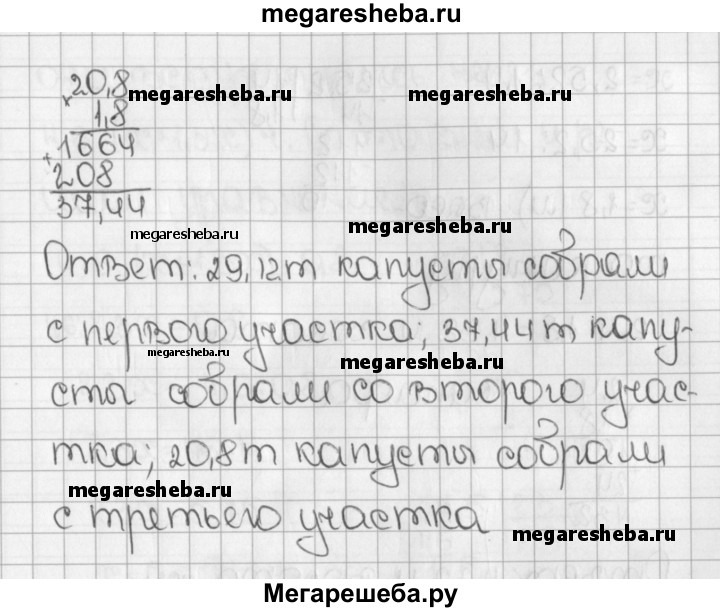 megaresheba.ru
20,8
× 1,8
megaresheba.ru megaresheba.ru
+ 1664
208
37,44
megaresheba.ru megaresheba.ru
Ответ: 29,12т капусты собрали
с первого участка; 37,44т капу-
megaresheba.ru megaresheba.ru
сты собрали со второго учас-
тка; 20,8т капусты собрали
megaresheba.ru
с третьего участка
megaresheba.ru
Мегарешеба.ру